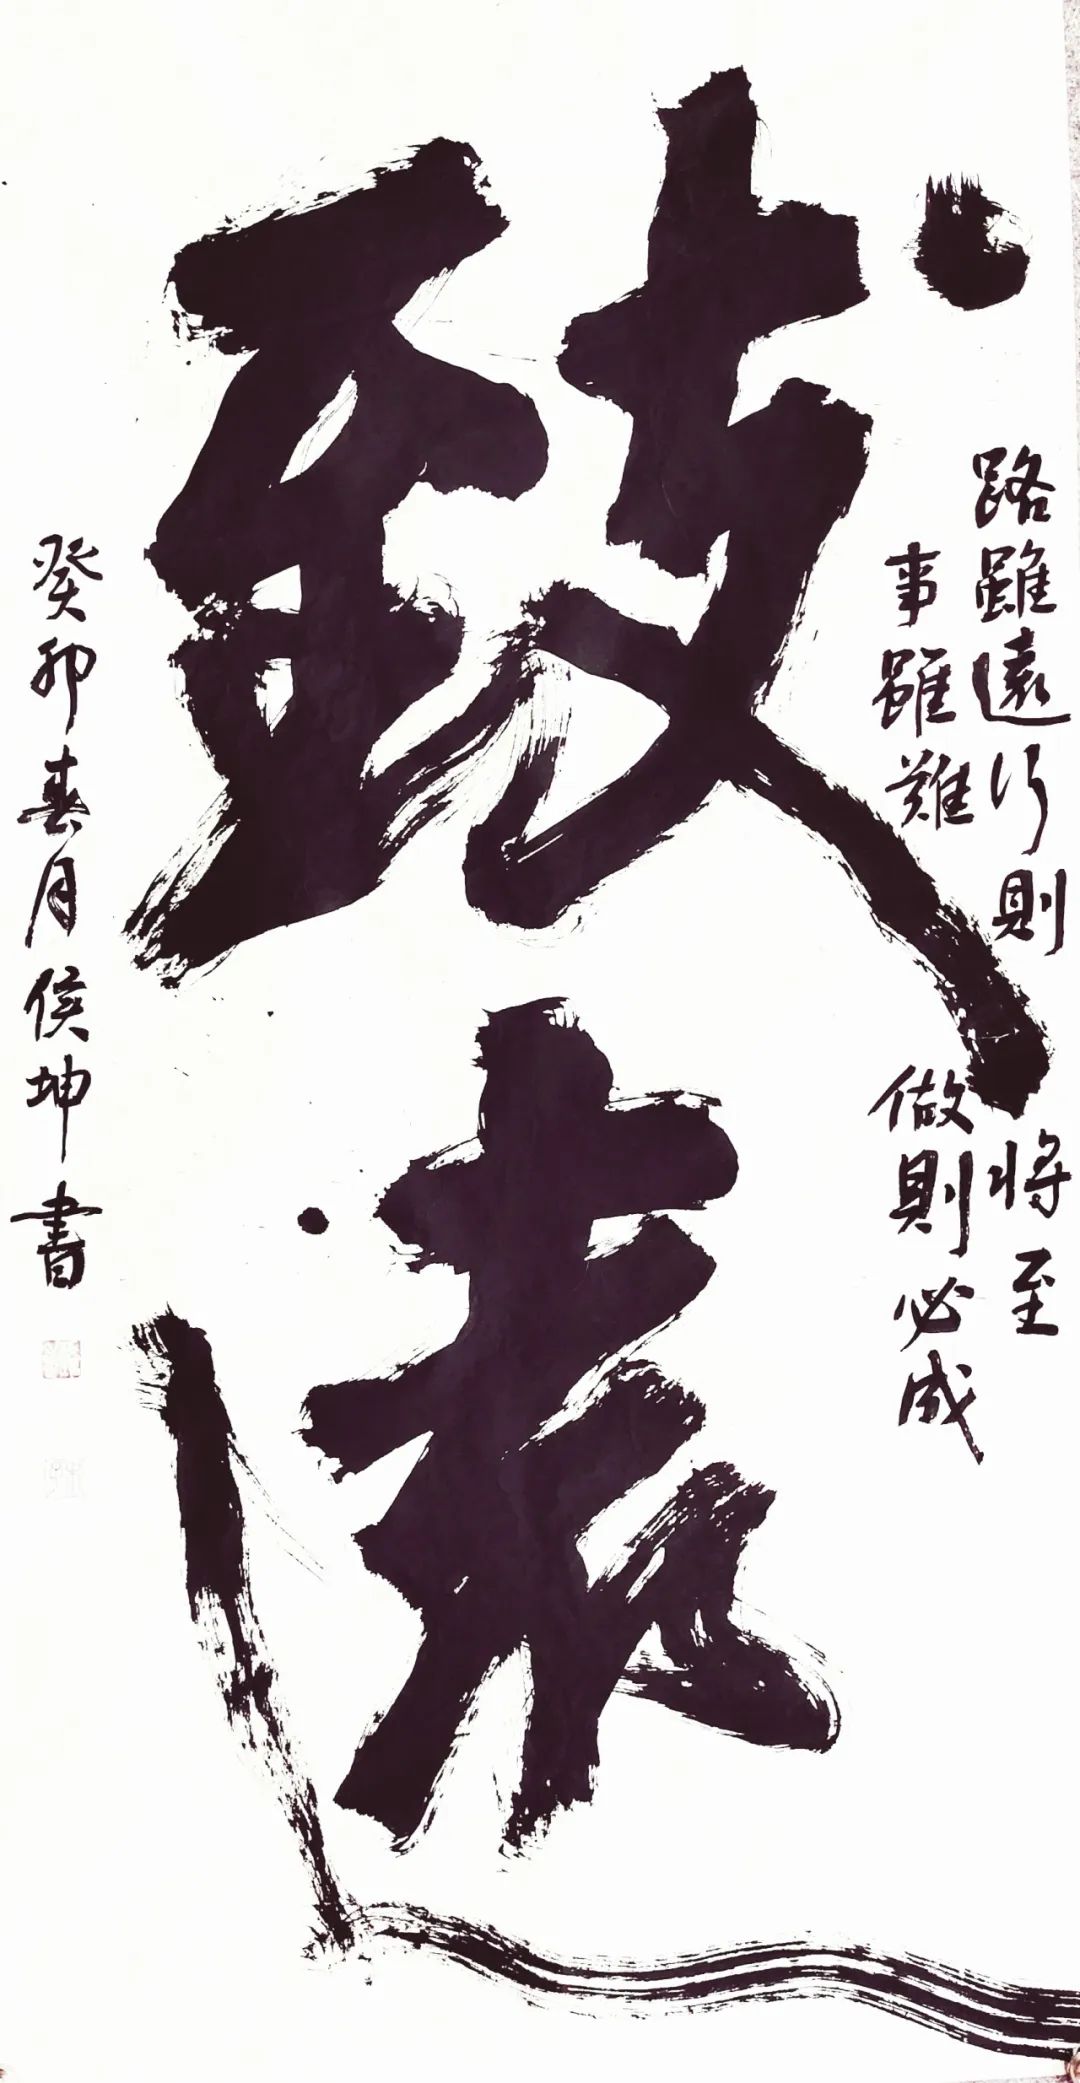 路雖遠行則将至
事雖難做則必成
致遠
癸卯春月侯坤書